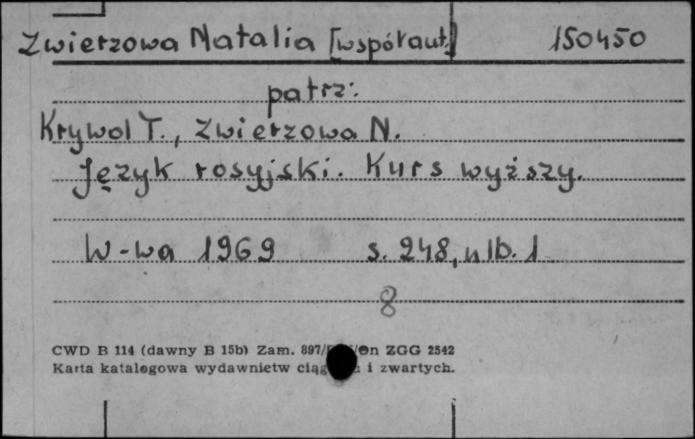 Zwierzowa Natalia [współaut.] 150450
patrz:
Krywol T., Zwierzowa N.
Język rosyjski. Kurs wyższy.
W-wa 1969 s. 248, nlb. 1
8
CWD B 114 (dawny B 15b) Zam. 897/ /On ZGG 2542
Karta katalogowa wydawnictw i zwartych.